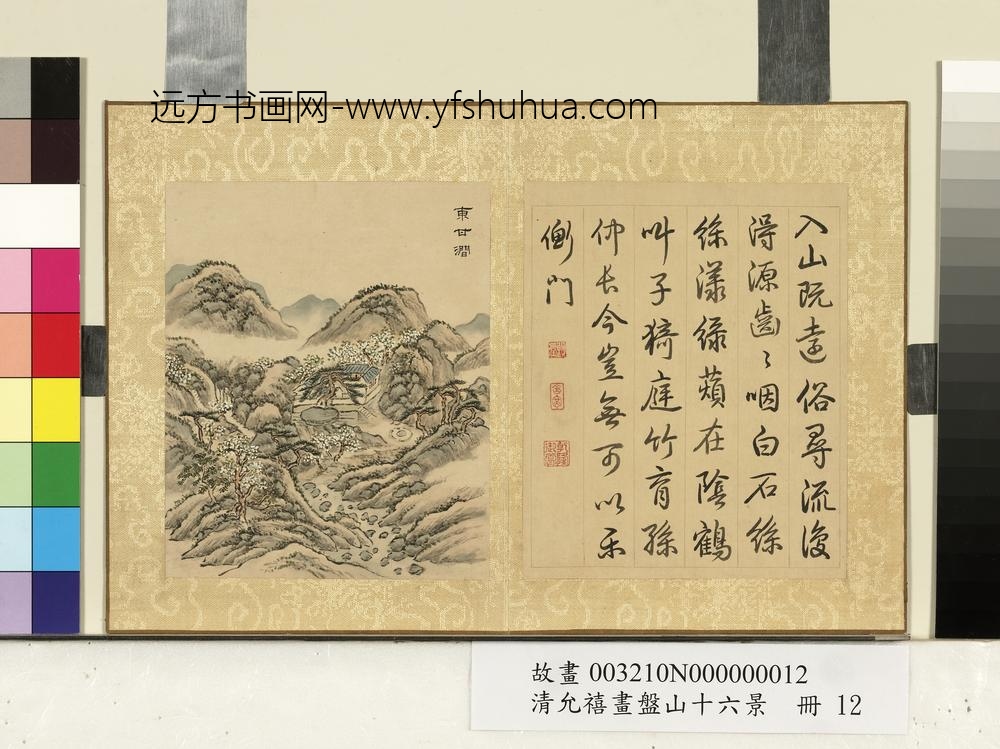 远方书画网-www.yfshuhua.com
東甘澗
入山既遠俗尋流復
得源齒〻咽白石徐
徐漾綠蘋在陰鶴
叫子猗庭竹育孫
仲長今豈無可以樂
衡門
故畫 003210N000000012
清允禧畫盤山十六景 冊 12